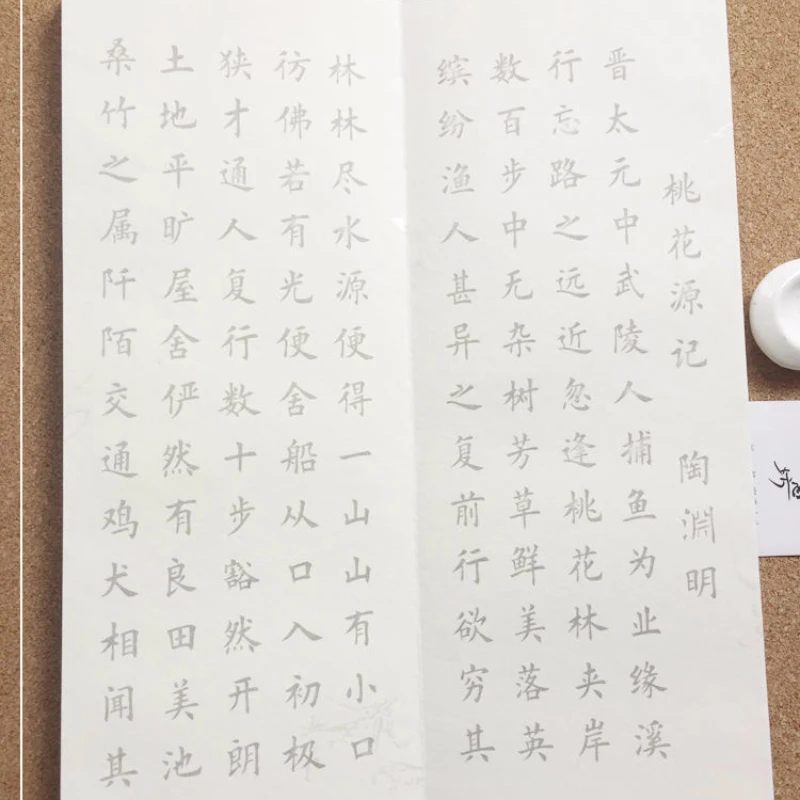 桃花源记 陶渊明
晋太元中武陵人捕鱼为业缘溪
行忘路之远近忽逢桃花林夹岸
数百步中无杂树芳草鲜美落英
缤纷渔人甚异之复前行欲穷其
林林尽水源便得一山山有小口
彷佛若有光便舍船从口入初极
狭才通人复行数十步豁然开朗
土地平旷屋舍俨然有良田美池
桑竹之属阡陌交通鸡犬相闻其